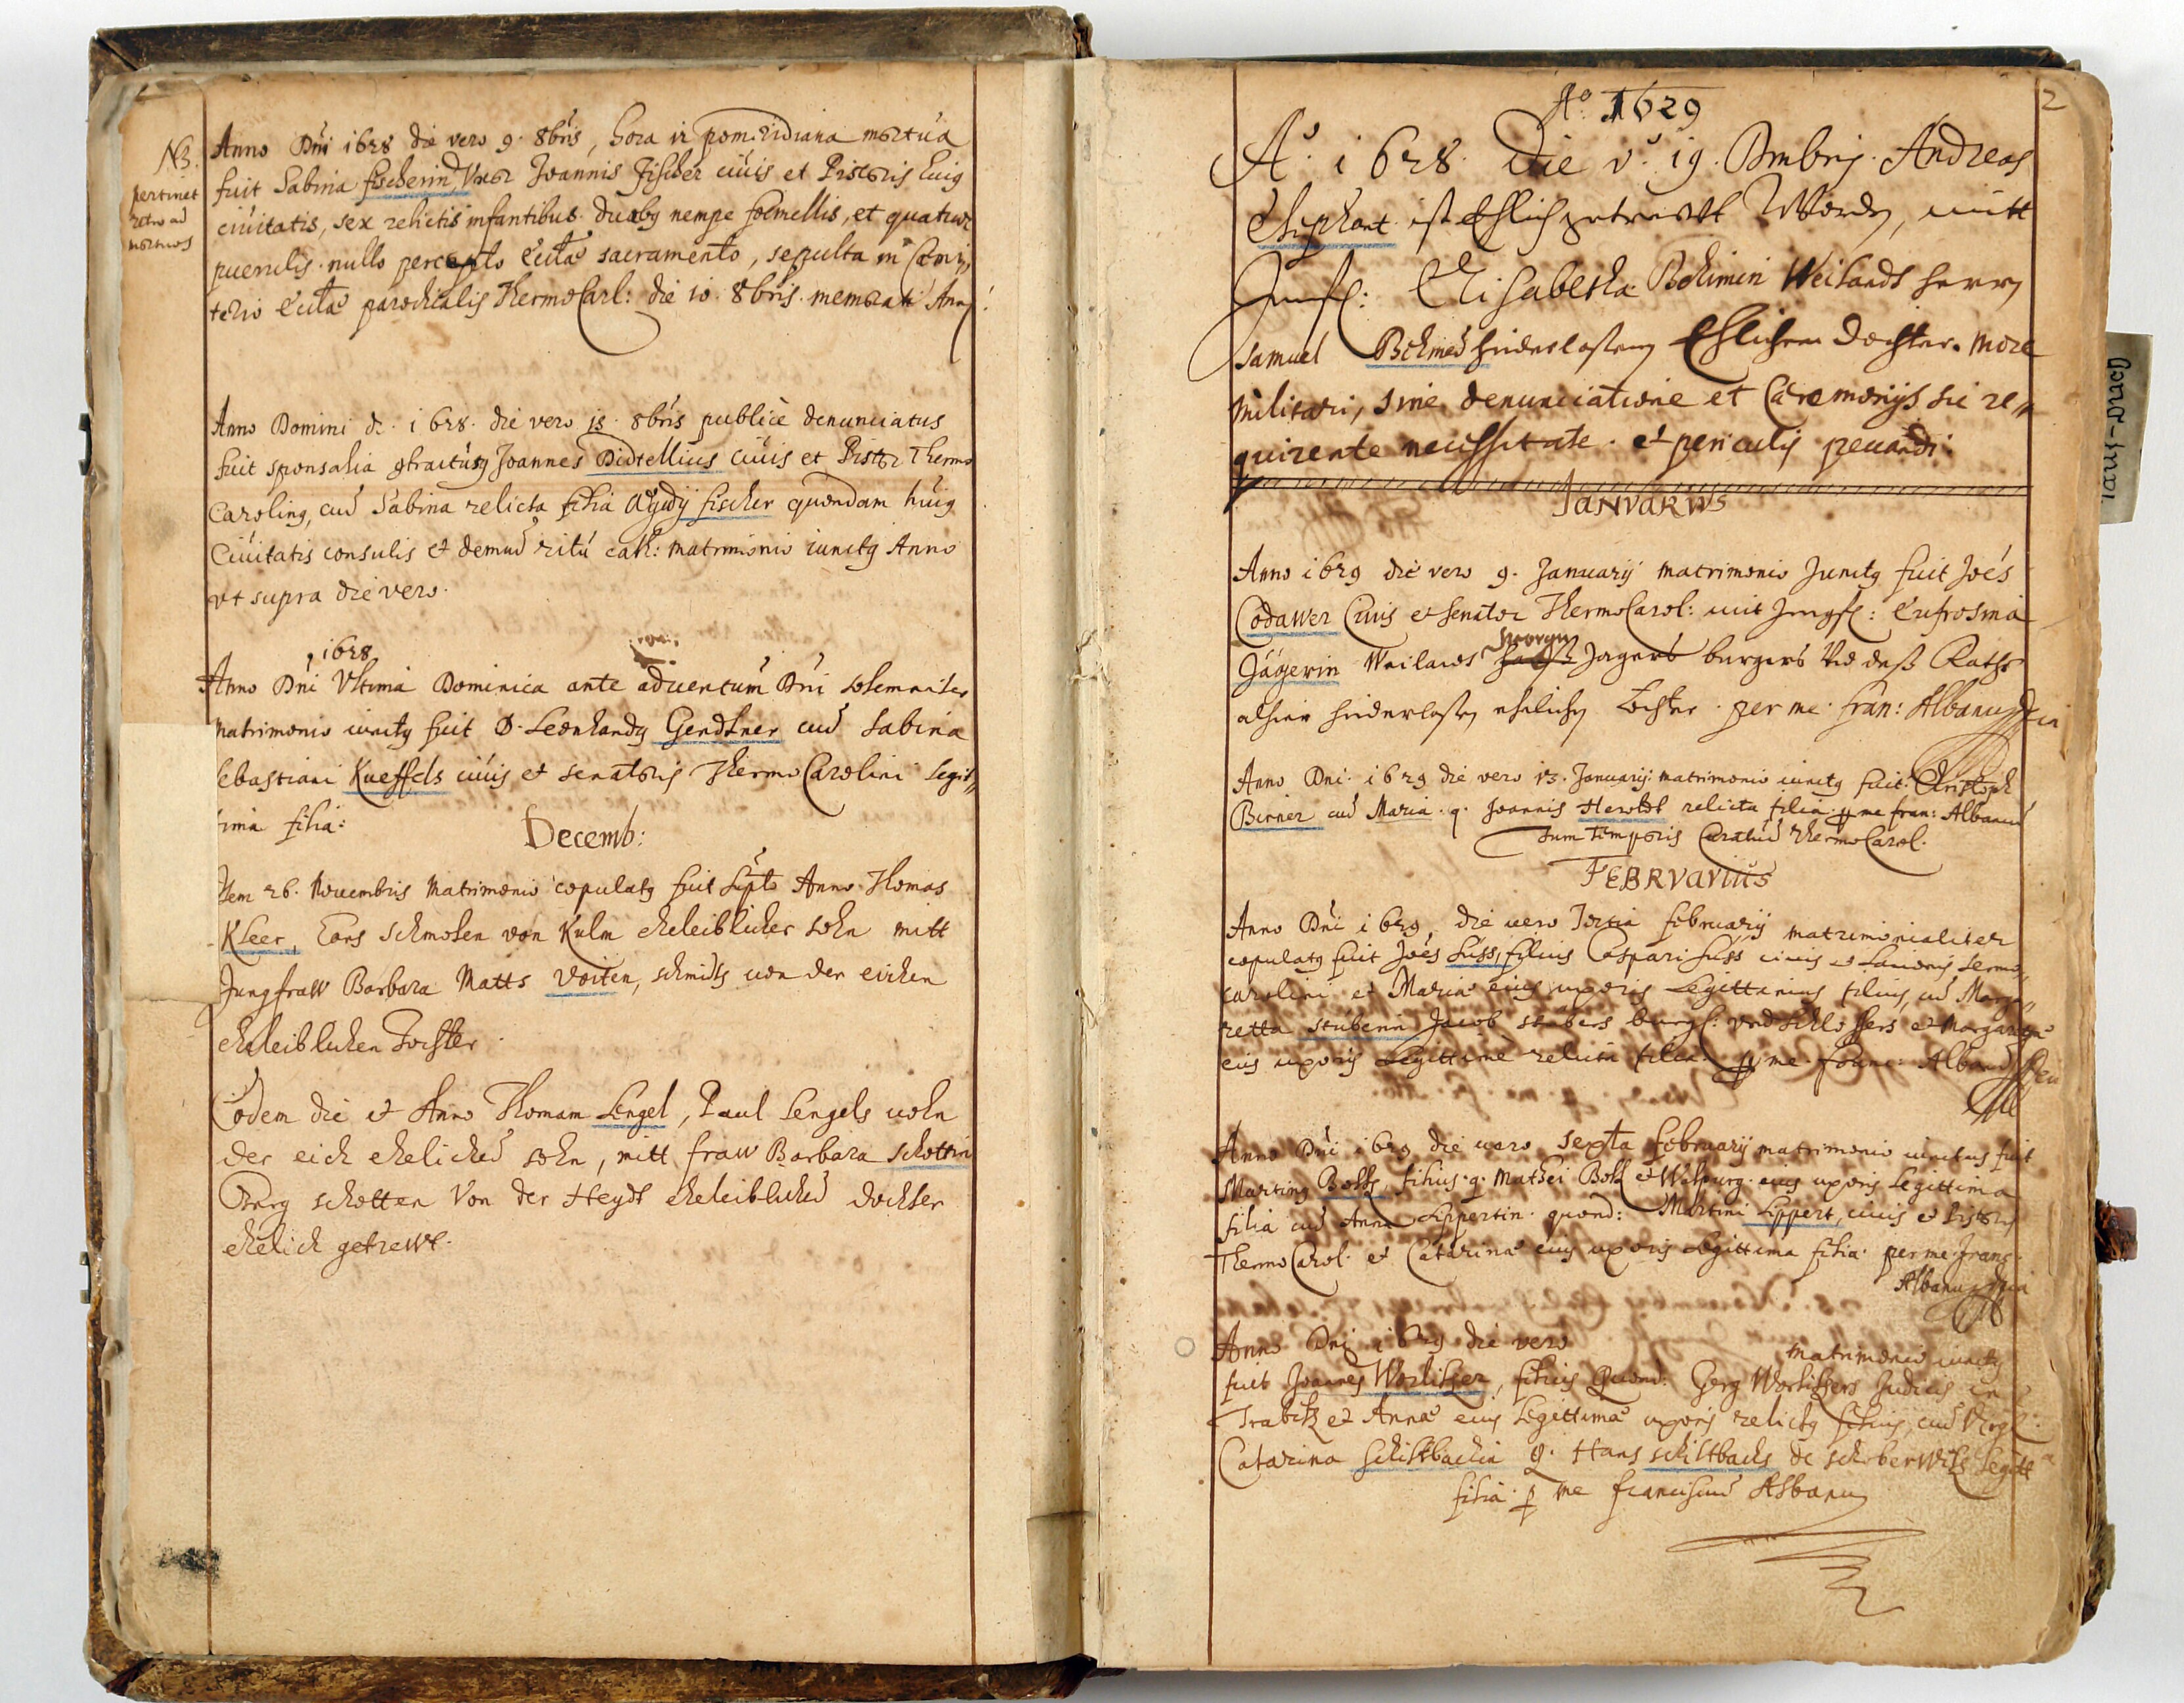 NB.
pertinet
retro ad
mortuos
Anno Dni 1628 die vero 9. 8bris, hora 12 pomeridiana mortua
fuit Sabina fischerin, Vxor Joannis Fischer ciuis et Pistoris huig
ciuitatis, sex relictis infantibus. duabg nempe foemellis, et quatuor
puerulis. nullo percepto Eccłae sacramento, sepulta in Caemi„
terio Eccłae parochialis ThermoCarl: die 10. 8bris. memorati Anni
Anno Domini 1628. die vero 15. 8bris publicè denunciatus
fuit sponsalia Joannes Didtellius ciuis et Pistor Thermo
Caroling, cum Sabina relicta filia Aegidij fischer quondam huig
Ciuitatis consulis et demum ritu cath: matrimonio iunctg Anno
vt supra die vero.
1628
Anno Dni Vltima Dominica ante aduentum Dni solemniter
matrimonio iunctg fuit D. Leonhardg Gendtner cum Sabina
Sebastiani Kueffels ciuis et senatoris ThermoCarolini Legit„
tima filia:
Decemb:
Item 26. Nouembris Matrimonio copulatg fuit Anno Thomas
Kleer, Schmolen von Kulm eheleiblicher sohn mitt
Jungfraw Barbara Matts Voiten, schmidts von der eichen
eheleiblichen Tochter.
Eodem die et Anno Thomam Lengel, Paul Lengels uohn
der eich ehelichen sohn, mitt fraw Barbara schottin
Georg schotten Von der Heydt eheleiblichen dochter
ehelich getrewt.
2
Ao. 1629
Ao. 1628. Die vo. 19. Andreas
Eliphant ist Ehlich getrewt Worden, mitt
Jungf: Elisabetha Bohimin Weilandt herrn
Samuel hinderlassenen Ehlichen dochter. more
militari, sine denunciatione et Caeremonijs sic re„
quirente necessitate. et periculis
IANVARIVS
Anno 1629 die vero 9. Januarij matrimonio Junctg fuit Joes
Codawer Ciuis et Senator ThermoCarol: mit Jungf: Eufrosina
Georgen
Jägerin Weilands Jagers burgers Vnd deß Raths
alhier hinderlassen ehelichen Tochter. per me. fran: Albanum
Anno Dni. 1629 die vero 13. Januarij: matrimonio iunctg fuit. Christoph
Birner cum Maria. q. Joannis Herold relicta filia. me fran: Albanum
tum temporis Curatum ThermoCarol.
FEBRVARIUS
Anno Dni 1629, die uero Tertia februarij matrimonialiter
copulatg fuit Joes Suss, filius Caspari Suss ciuis et Termo„
carolini et Mariae eius uxoris Legittimus filius, cum Marga„
retta stuberin Jacob stubers burg: vnd schlossers et Margaretae
eius uxoris Legittimè relicta filia. me Albanum
Anno Dni 1629 die uero sexta februarij matrimonio iunctus fuit
Marting Boltz, filius. q. Mathei Boltz et Walpurg. eius uxoris Legittima
filia cum Anna Lippertin. quond: Martini Lippert, ciuis et Pistoris
ThermoCarol. et Catarinae eius uxoris Legittima filia. per me. franc.
Albanum
Anno Dni 1629 die vero matrimonio iunctg
fuit Joannes Worlitzer, filius Quond. Georg Worlitzers Judicis in
et Annae eius Legittimae uxoris relictg filius, cum Virg:
Catarina schiltbachin q. Hans schiltbachs de Legitt
filia. p me franciscum Albanum